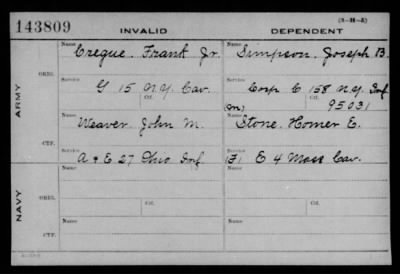 143809 INVALID DEPENDENT (3-H-5)
Name Name
Cregue. Frank Jr. Simpson. Joseph B.
ARMY
ORIG.
Service Service
G 15 N.Y. Cav. Corp C 158 N.Y. Inf
Ctf. Ctf.
(M) 95031
Name Name
Weaver. John M. Stone. Homer E.
CTF.
Service Service
A & E 27 Ohio Inf (F) E 4 Mass Cav.
NAVY
Name Name
ORIG.
Service Ctf. Service Ctf.
Name Name
CTF.
Service Service